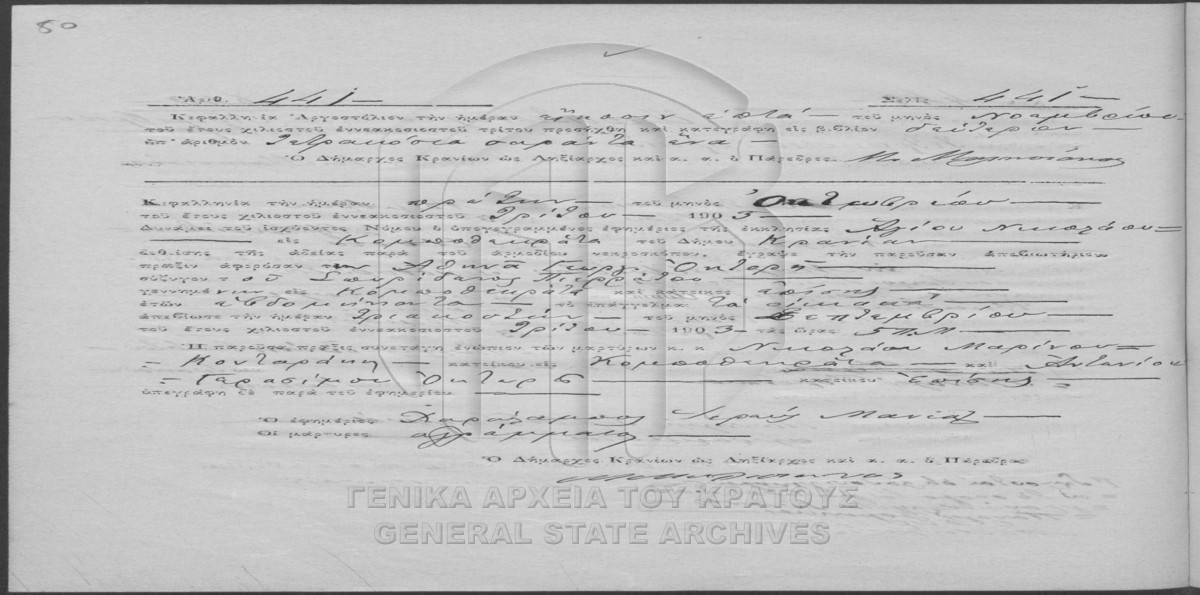 80
Ἀριθ. 441 — Σελὶς 441 —
Κεφαλληνία Ἀργοστόλιον τὴν ἡμέραν εἴκοσιν ἑπτά — τοῦ μηνὸς Νοεμβρίου
τοῦ ἔτους χιλιοστοῦ ἐννεακοσιοστοῦ τρίτου προσήχθη καὶ κατεγράφη εἰς βιβλίον δεύτερον —
ὑπ' ἀριθμὸν Τετρακόσια σαράντα ἕνα —
Ὁ Δήμαρχος Κρανίων ὡς Ληξίαρχος καὶ α. α. ὁ Πάρεδρος
Κεφαλληνία τὴν ἡμέραν πρώτην — τοῦ μηνὸς Ὀκτωβρίου —
τοῦ ἔτους χιλιοστοῦ ἐννεακοσιοστοῦ Τρίτου — 1903 —
Δυνάμει τοῦ ἰσχύοντος Νόμου ὁ ὑπογεγραμμένος ἐφημέριος τῆς ἐκκλησίας Ἁγίου Νικολάου =
— εἰς Κομποθεκράτα τοῦ Δήμου Κρανίων —
δοθείσης τῆς ἀδείας παρὰ τοῦ ἁρμοδίου νεκροσκόπου, ἔγραψε τὴν παροῦσαν ἀποβιωτήριον
πρᾶξιν ἀφορῶσαν την Ἀθηνᾶ Γεωργ.
σύζυγον τοῦ Σπυρίδωνος
γεννημένην εἰς Κομποθεκράτα καὶ κάτοικος ἐπίσης —
ἐτῶν ἑβδομήκοντα — τὸ ἐπάγγελμα τὰ οἰκιακά —
ἀπεβίωσε τὴν ἡμέραν Τριακοστήν — τοῦ μηνὸς Σεπτεμβρίου —
τοῦ ἔτους χιλιοστοῦ ἐννεακοσιοστοῦ Τρίτου — 1903 — τὰς ὥρας 5 π.μ —
Ἡ παροῦσα πρᾶξις συνετάγη ἐνώπιον τῶν μαρτύρων κ. κ. Νικολάου Μαρίνου =
= Κονταράτη — κατοίκου εἰς Κομποθεκράτα — καὶ Ἀντωνίου
= Γερασίμου — κατοίκου Ἐπίσης —
ὑπεγράφη δὲ παρὰ τοῦ ἐφημερίου —
Ὁ ἐφημέριος Χαράλαμπος Ἱερεὺς —
Οἱ μάρτυρες ἀγράμματοι —
Ὁ Δήμαρχος Κρανίων ὡς Ληξίαρχος καὶ α. α. ὁ Πάρεδρος
ΓΕΝΙΚΑ ΑΡΧΕΙΑ ΤΟΥ ΚΡΑΤΟΥΣ
GENERAL STATE ARCHIVES